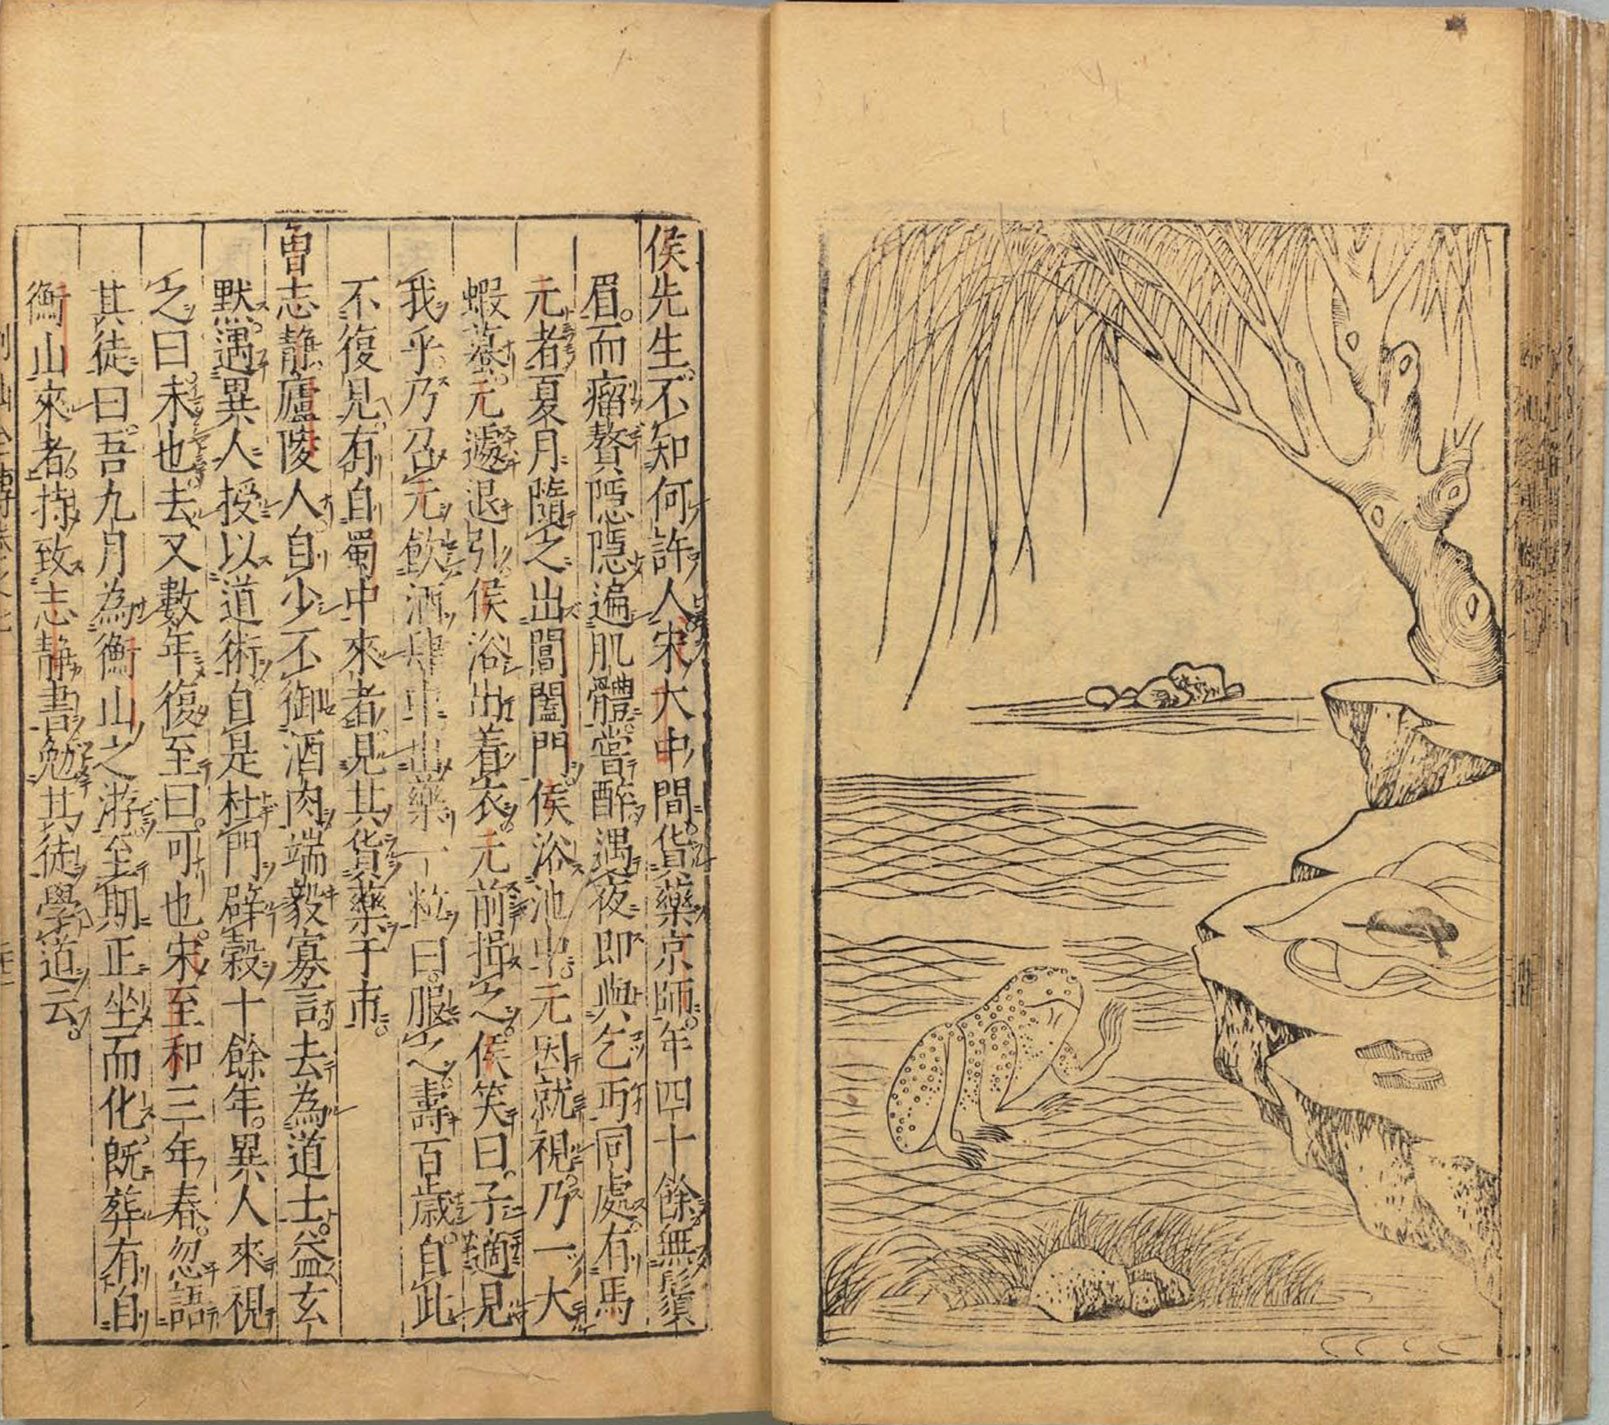 侯先生不知何許人宋大中間貨藥京師年四十餘無鬚
眉而瘤贅隱隱遍肌體嘗醉遇夜即與乞丐同處有馬
元者夏月隨之出閶闔門侯浴池中元因就視乃一大
蝦蟇元遽退引侯浴出着衣元前揖之侯笑曰子適見
我乎乃召元飲酒肆中出藥一粒曰服之壽百歲自此
不復見有自蜀中來者見其貨藥于市
曾志靜廬陵人自少不御酒肉端毅寡言去為道士益玄
默遇異人授以道術自是杜門辟穀十餘年異人來視
之曰未也去又數年復至曰可也宋至和三年春忽語
其徒曰吾九月為衡山之游至期正坐而化既葬有自
衡山來者持致志靜書勉其徒學道云